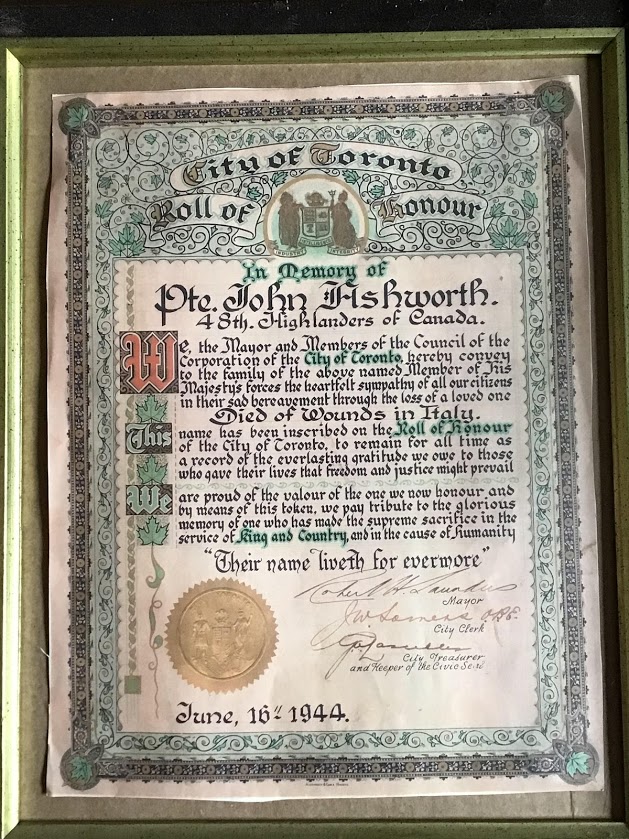 City of Toronto
Roll of Honour
INDUSTRY INTEGRITY
In Memory of
Pte. John Ashworth.
48th. Highlanders of Canada.
We, the Mayor and Members of the Council of the
Corporation of the City of Toronto, hereby convey
to the family of the above named Member of His
Majesty's forces the heartfelt sympathy of all our citizens
in their sad bereavement through the loss of a loved one
Died of Wounds in Italy.
This name has been inscribed on the Roll of Honour
of the City of Toronto, to remain for all time as
a record of the everlasting gratitude we owe to those
who gave their lives that freedom and justice might prevail
We are proud of the valour of the one we now honour and
by means of this token, we pay tribute to the glorious
memory of one who has made the supreme sacrifice in the
service of King and Country, and in the cause of Humanity
"Their name liveth for evermore"
Robert H. Saunders
Mayor
J W Somers O.B.E.
City Clerk
City Treasurer
and Keeper of the Civic Seal
June, 16th 1944.